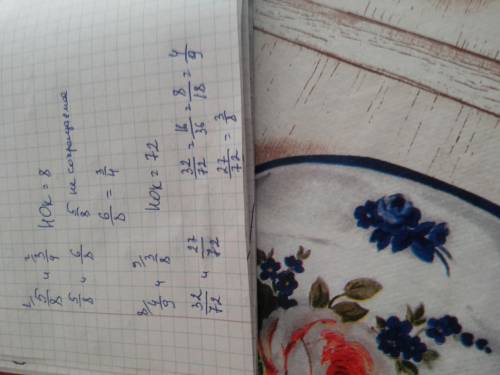 5/8 и 3/4 НОК = 8
5/8 и 6/8 5/8 не сокращаемое
6/8 = 3/4
4/9 и 3/8 НОК = 72
32/72 и 27/72 32/72 = 16/36 = 8/18 = 4/9
27/72 = 3/8